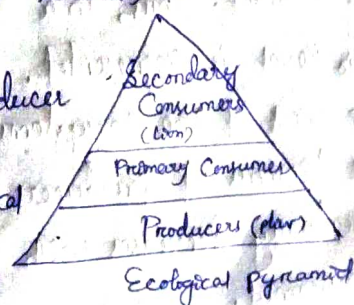 ducer
Secondary
Consumers
(lion)
Primary Consumer
cal
Producers (plan)
Ecological pyramid